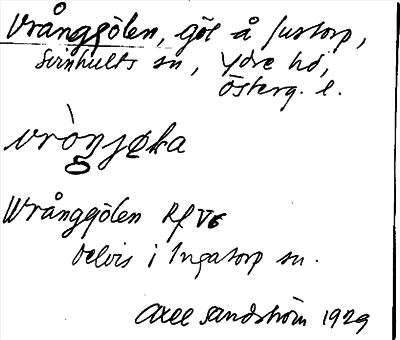 Vrånggölen, göl å Justorp,
Svinhults sn, Ydre hd,
Österg. l.
vròŋjøka
Wrånggölen Rf V6
delvis i Ingatorp sn.
Axel Sandström 1929